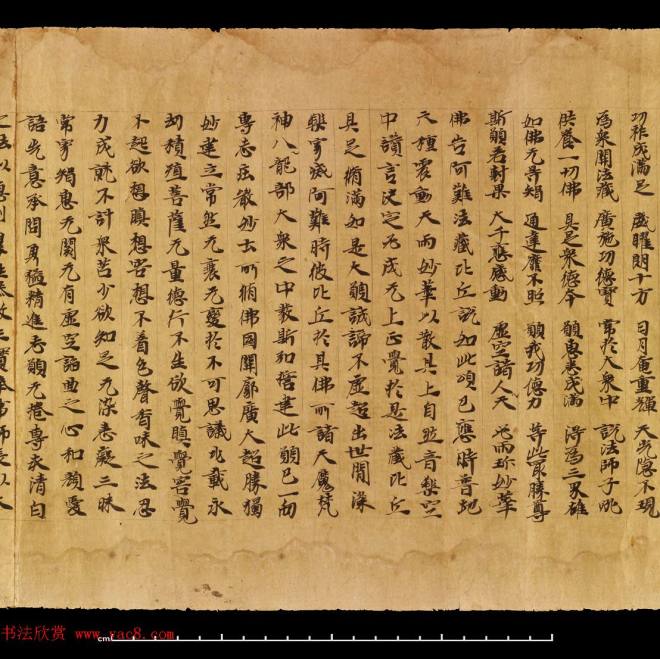 功祚成滿足 威曜朗十方 日月戢重暉 天光隱不現
為衆開法藏 廣施功德寶 常於大衆中 說法師子吼
供養一切佛 具足衆德本 願惠悉成滿 得為三界雄
如佛无导智 通達靡不照 願我功德力 等此最勝尊
斯願若剋果 大千應感動 虛空諸人天 當雨珍妙華
佛告阿難法藏比丘說如此頌已應時普地
六種震動天雨妙華以散其上自然音樂空
中讚言決定必成无上正覺於是法藏比丘
具足脩滿如是大願誠諦不虛超出世間深
樂寂滅阿難時彼比丘於其佛所諸天魔梵
神八龍部大衆之中發斯弘誓建此願已一向
專志莊嚴妙土所脩佛國開廓廣大超勝獨
妙建立常然无衰无變於不可思議兆載永
劫積殖菩薩无量德行不生欲覺瞋覺害覺
不起欲想瞋想害想不着色聲香味之法忍
力成就不計衆苦少欲知足无染恚癡三昧
常寂智惠无閡无有虛空諂曲之心和顏愛
語先意承問勇猛精進志願无惓專求清白
之法以惠利群生恭敬三寶奉事師長以大
书法欣赏 www.yac8.com
cm